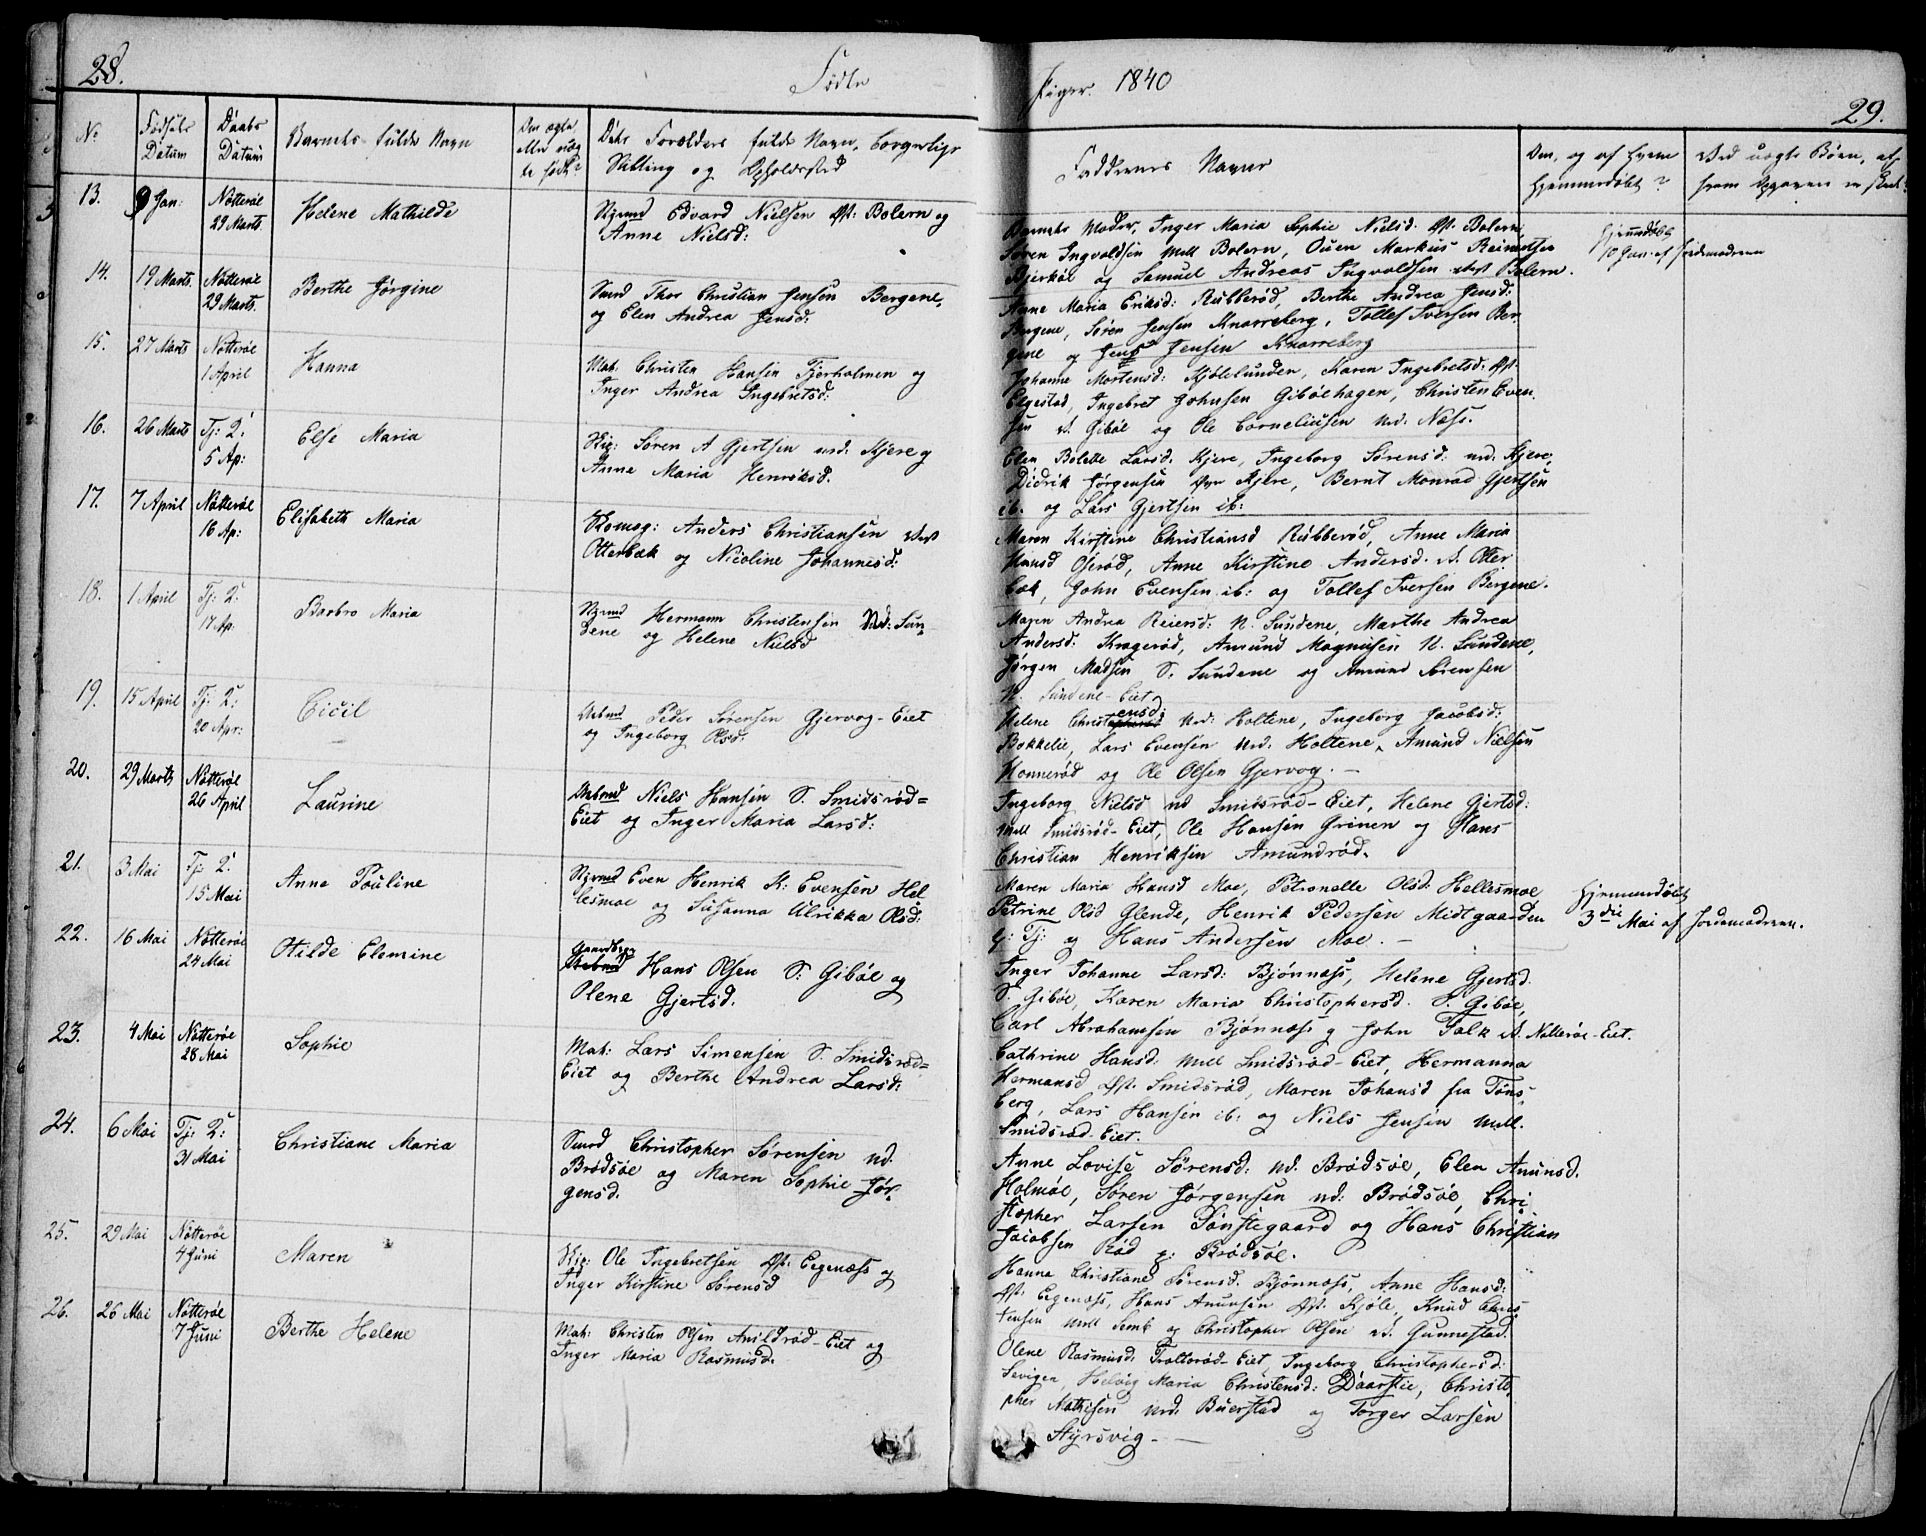 28.
Fødte
Piger. 1840
29.
No
Fødsels Datum
Daabs Datum
Barnets fulde Navn
Om ægte eller uægte født?
Dets Forældres fulde Navn, borgerlige Stilling og Opholdssted
Faddernes Navne
Om, og af hvem hjemmedøbt?
13.
9 Jan:
Nøtterøe
29 Marts.
Helene Mathilde
Edvard Nielsen Øst: Bolern og
Anne Nielsd:
Barnets Moder, Inger Maria Sophie Nielsd. Øst. Bolern,
Søren Ingvoldsen Mell Bolern, Ouen Markus Reinertsen
Bjerkøl og Samuel Andreas Ingvoldsen Bolern.
Hjemmedøbt
10 Jan. af Jordemoderen
14.
19 Marts.
Nøtterøe
29 Marts.
Berthe Jørgine
Smed Thor Christian Jensen Bergene,
og Elen Andrea Jensd:
Anne Maria Eriksd: Rubberød, Berthe Andrea Jensd:
Bergene, Søren Jensen Knarreberg, Tollef Iversen Ber-
gene og Jens Jensen Knarreberg
15.
27 Marts
Nøtterøe
1 April
Hanna
Mat: Christen Hansen Fjerholmen og
Inger Andrea Ingebretsd:
Johanne Mortensd: Kjølelunden, Karen Ingebretsd: Øst.
Elgestad, Ingebret Johnsen Gibøehagen, Christen Even-
sen V. Gibøl og Ole Corneliusen Nd: Næss.
16.
26 Marts
Tj: 2:
5 Ap:
Else Maria
Søren A Gjertsen Nd: Kjere og
Anne Maria Henriksd.
Elen Bolette Larsd. Kjere, Ingeborg Sørensd: Nd: Kjere,
Didrik Jørgensen Kjere, Bernt Monrad Gjertsen
ib. og Lars Gjertsen ib:
17.
7 April
Nøtterøe
16 Ap:
Elisabeth Maria
Skomag: Anders Christiansen Vest
Otterbæk og Nicoline Johannesd:
Maren Kirstine Christiansd Rubberød, Anne Maria
Hansd Oserød, Anne Kirstine Andersd. V. Otter
bæk, John Evensen ib: og Tollef Iversen Bergene.
18.
1 April
Tj: 2:
17 Ap:
Barbro Maria
Hermann Christensen Nd: Sun-
dene og Helene Nielsd
Maren Andrea Reiersd: N. Sundene, Marthe Andrea
Andersd: Kragerød, Amund Magnusen N. Sundene,
Jørgen Madsen S. Sundene og Amund Sørensen
N. Sundene-Eiet
19.
15 April
Tj: 2:
20 Apr:
Cicil
Peder Sørensen Gjervog-Eiet
og Ingeborg Olsd:
Helene Christensd: Nd: Holtene, Ingeborg Jacobsd:
Bekkelie, Lars Evensen Nd. Holtene, Amund Nielsen
Honnerød og Ole Olsen Gjervog.
20.
29 Marts
Nøtterøe
26 April
Laurine
Niels Hansen S. Smidsrød-
Eiet og Inger Maria Larsd:
Ingeborg Nielsd Nd Smidsrød-Eiet, Helene Gjertsd:
Mell Smidsrød-Eiet, Ole Hansen Grinen og Hans
Christian Henriksen Amundrød.
21.
3 Mai
Tj 2:
15 Mai
Anne Pouline
Even Henrik K: Evensen Hel
lesmoe og Susanna Ulrikka Olsd:
Maren Maria Hansd Moe, Petronelle Olsd. Hellesmoe
Petrine Olsd Glende, Henrik Pedersen Midtgaarden
G: Tj: og Hans Andersen Moe.
Hjemmedøbt
3die Mai af Jordemoderen.
22.
16 Mai
Nøtterøe
24 Mai
Othilde Elomine
Hans Olsen S: Gibøe og
Olene Gjertsd.
Inger Johanne Larsd: Bjønnæss, Helene Gjertsd.
S. Gibøe, Karen Maria Christophersd. S. Gibøe,
Carl Abrahamsen Bjønnæss og John Falk V. Nøtterøe-Eiet.
23.
4 Mai
Nøtterøe
28 Mai
Sophie
Mat: Lars Simensen S. Smidsrød-
Eiet og Berthe Andrea Larsd:
Cathrine Hansd. Mell Smidsrød-Eiet, Hermanna
Hermansd Øst. Smidsrød, Maren Johansd fra Tøns-
berg, Lars Hansen ib: og Niels Jensen Mell.
Smidsrød-Eiet.
24.
6 Mai
Tj: 2:
31 Mai
Christiane Maria
Smed Christopher Sørensen Nd.
Brødsøe og Maren Sophie Jør-
gensd.
Anne Lovise Sørensd: Nd. Brødsøe, Elen Anunsd.
Holmøe, Søren Jørgensen Nd: Brødsøe, Chri-
stopher Larsen Sønstegaard og Hans Christian
Jacobsen Rød p: Brødsøe.
25.
29 Mai
Nøtterøe
4 Juni
Maren
Ole Ingebretsen Øst: Eegenæss og
Inger Kirstine Sørensd
Hanna Christiane Sørensd. Bjønnæss, Anne Hansd:
Øst. Eegenæss, Hans Anunsen Øst. Kjøle, Knud Chris-
tensen Mell Semb og Christopher Olsen V. Gunnestad.
26.
26 Mai
Nøtterøe
7 Juni
Berthe Helene
Mat: Christen Olsen Anildrød-Eiet og
Inger Maria Rasmusd.
Olene Rasmusd: Trolterød-Eiet, Ingeborg Christophersd:
Sevigen, Helvig Maria Christensd: Daarstie, Christo-
pher Mathisen Nd: Buerstad og Torger Larsen
Styrsvig.